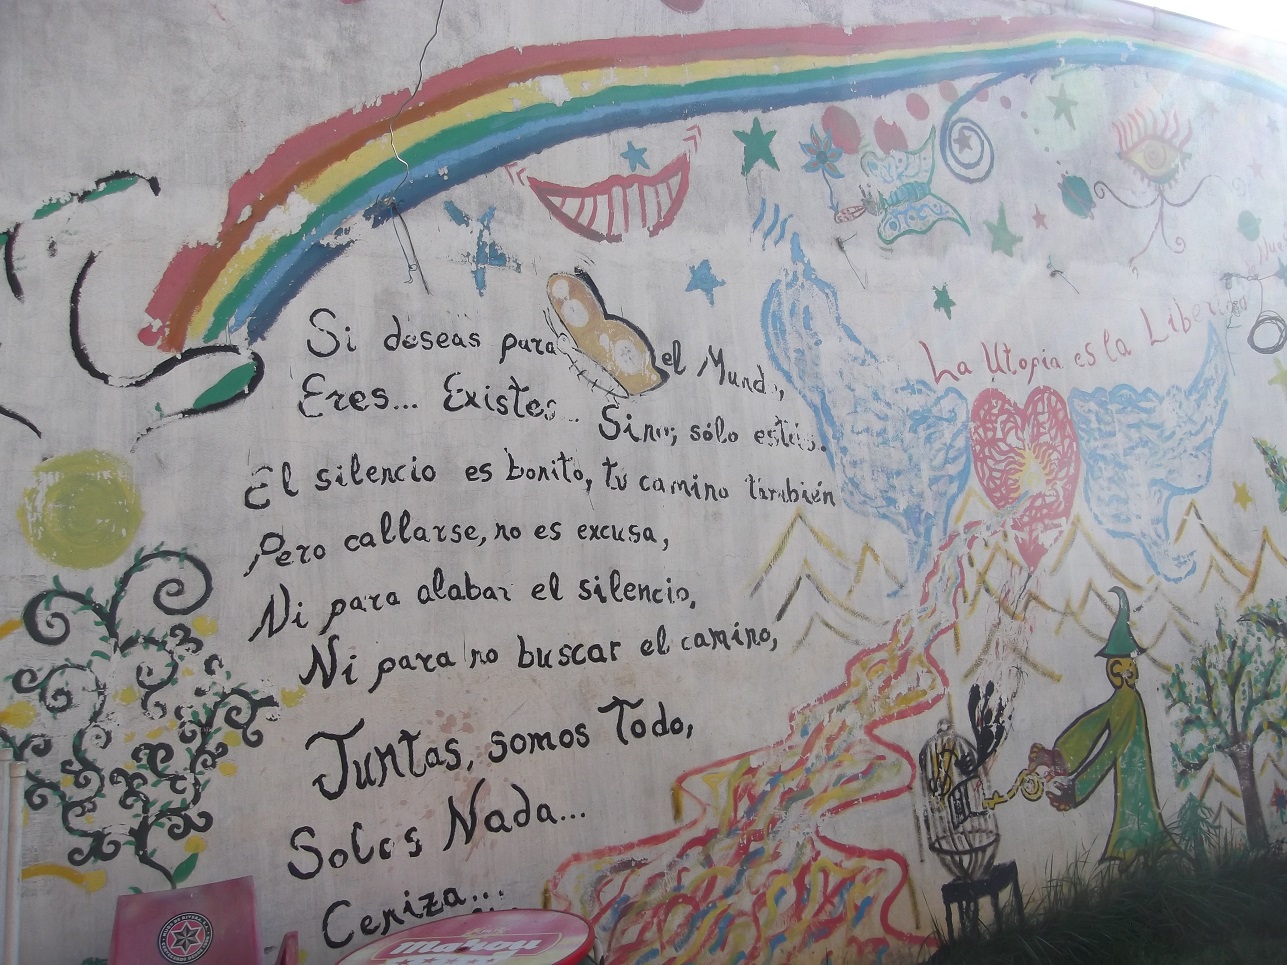 Si deseas para el Mundo,
Eres... Existes... Sino, sólo estás..
El silencio es bonito, tu camino también
Pero callarse, no es excusa,
Ni para alabar el silencio,
Ni para no buscar el camino,
Juntas, somos Todo,
Solos Nada...
Ceniza...
La Utopía es la
Mahou